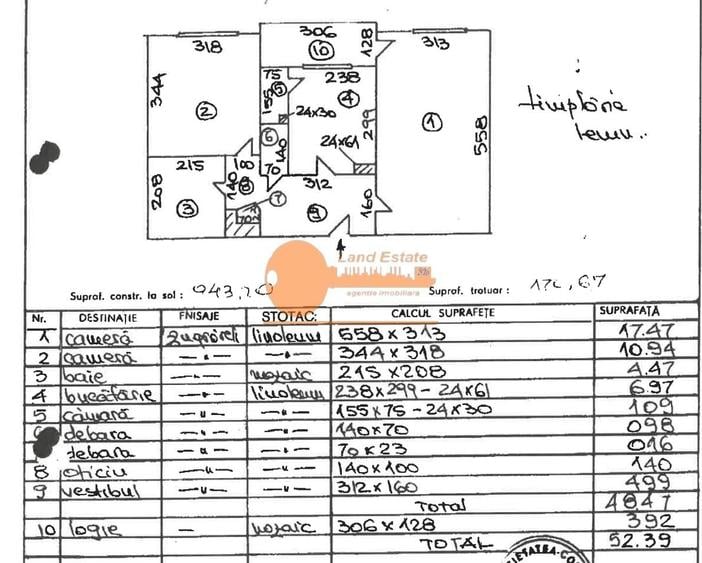 318
306
10
128
313
344
2
75
5
155
238
4
24x30
299
1
558
tîmplărie
lemn..
6
140
24x61
215
100
70
312
208
3
140
8
7
9
160
Land Estate
agentie imobiliara
Supraf. constr. la sol : 943,20 Supraf. trotuar : 174,67
Nr. DESTINAȚIE FINISAJE STOTAC: CALCUL SUPRAFEȚE SUPRAFAȚĂ
1 cameră zugrăveli linoleum 558 x 313 17.47
2 cameră —"— —"— 344 x 318 10.94
3 baie —"— mozaic 215 x 208 4.47
4 bucătărie —"— linoleum 238 x 299 - 24 x 61 6.97
5 cămară —"— —"— 155 x 75 - 24 x 30 109
debara —"— —"— 140 x 70 098
debara —"— —"— 70 x 23 016
8 oficiu —"— —"— 140 x 100 140
9 vestibul —"— —"— 312 x 160 499
Total 4847
10 logie — mozaic 306 x 128 392
TOTAL 52.39